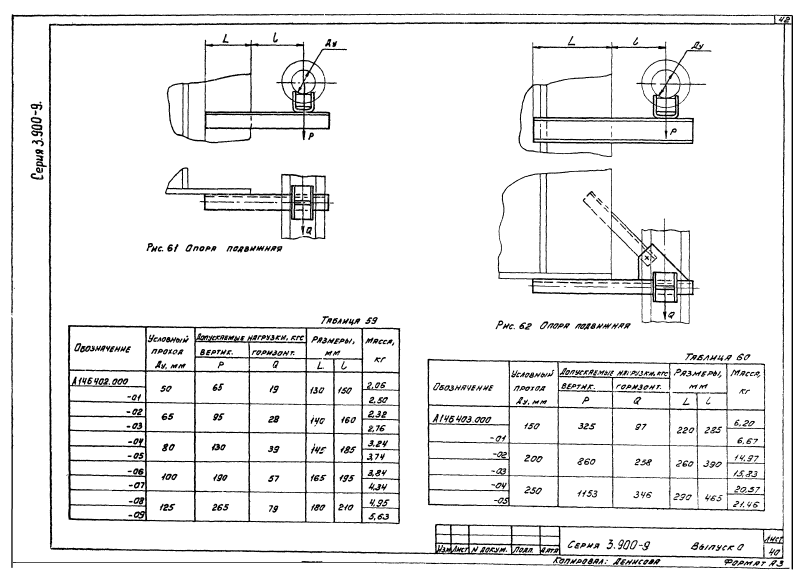 42
Серия 3.900-9.
L l Ду
P
Q
Рис. 61 Опора подвижная
L l Ду
P
Q
Рис. 62 Опора подвижная
Таблица 59
Обозначение | Условный проход Ду, мм | Допускаемые нагрузки, кгс | Размеры, мм | Масса, кг
вертик. P | горизонт. Q | L | l
А14Б402.000 | 50 | 65 | 19 | 130 | 150 | 2,06
-01 | 2,50
-02 | 65 | 95 | 28 | 140 | 160 | 2,32
-03 | 2,76
-04 | 80 | 130 | 39 | 145 | 185 | 3,24
-05 | 3,74
-06 | 100 | 190 | 57 | 165 | 195 | 3,84
-07 | 4,34
-08 | 125 | 265 | 79 | 180 | 210 | 4,95
-09 | 5,63
Таблица 60
Обозначение | Условный проход Ду, мм | Допускаемые нагрузки, кгс | Размеры, мм | Масса, кг
вертик. P | горизонт. Q | L | l
А14Б403.000 | 150 | 325 | 97 | 220 | 285 | 6,20
-01 | 6,67
-02 | 200 | 860 | 258 | 260 | 390 | 14,97
-03 | 15,83
-04 | 250 | 1153 | 346 | 290 | 465 | 20,57
-05 | 21,46
Изм Лист N докум. Подп. Дата
Серия 3.900-9 Выпуск 0
Лист
40
Копировал: Денисова Формат А3